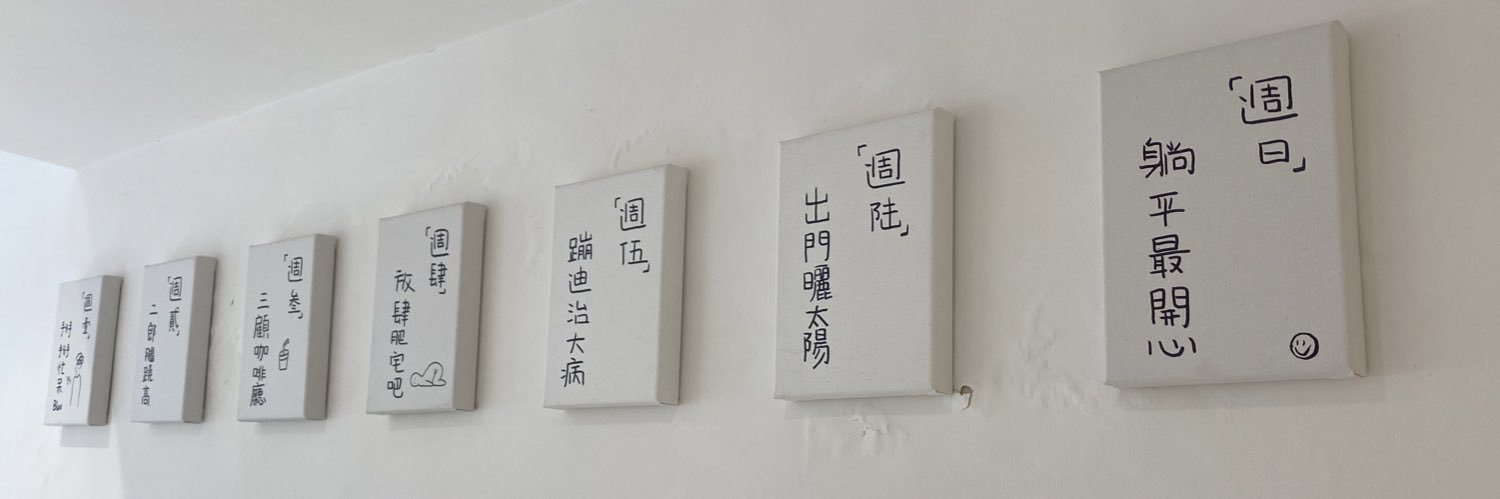 「週壹」
忙呆
「週貳」
二郎腿蹺高
「週叁」
三顧咖啡廳
「週肆」
放肆肥宅吧
「週伍」
蹦迪治大病
「週陸」
出門曬太陽
「週日」
躺平最開心